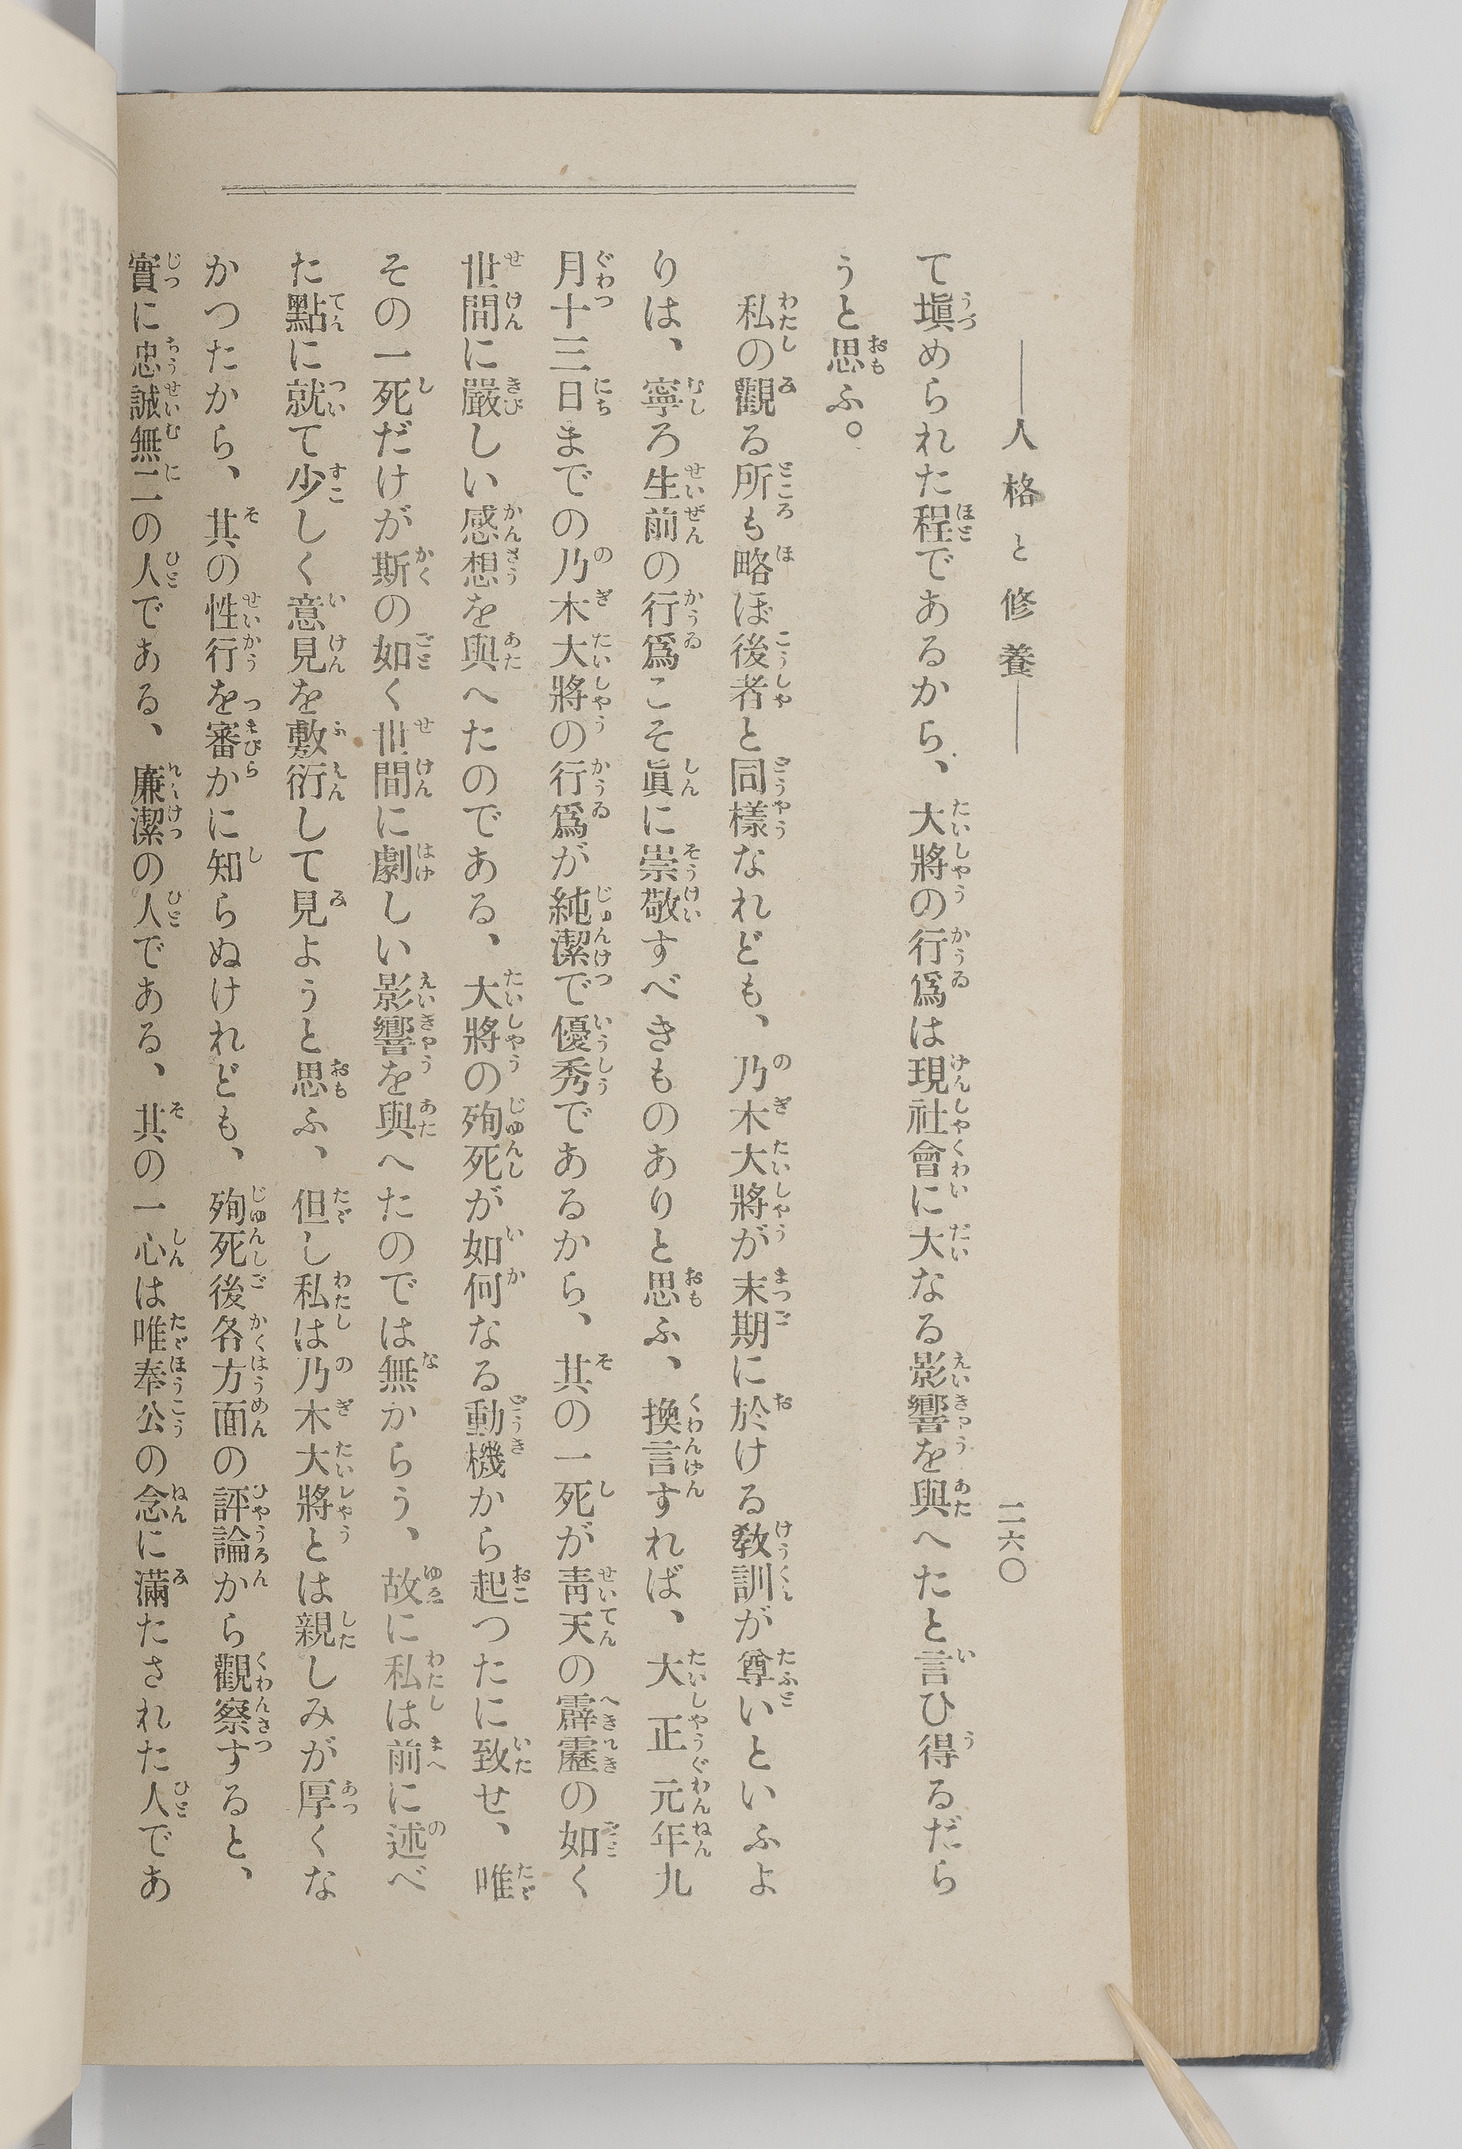 ――人格と修養――
二六〇
て塡められた程であるから、大將の行爲は現社會に大なる影響を與へたと言ひ得るだら
うと思ふ。
私の觀る所も略ぼ後者と同樣なれども、乃木大將が末期に於ける敎訓が尊いといふよ
りは、寧ろ生前の行爲こそ眞に崇敬すべきものありと思ふ、換言すれば、大正元年九
月十三日までの乃木大將の行爲が純潔で優秀であるから、其の一死が靑天の霹靂の如く
世間に嚴しい感想を與へたのである、大將の殉死が如何なる動機から起つたに致せ、唯
その一死だけが斯の如く世間に劇しい影響を與へたのでは無からう、故に私は前に述べ
た點に就て少しく意見を敷衍して見ようと思ふ、但し私は乃木大將とは親しみが厚くな
かつたから、其の性行を審かに知らぬけれども、殉死後各方面の評論から觀察すると、
實に忠誠無二の人である、廉潔の人である、其の一心は唯奉公の念に滿たされた人であ